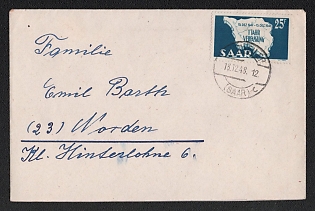 25F
1 JAHR
VERFASSUNG
SAAR
18.12.48. 12
(SAAR) c
Familie
Emil Barth
(23) Norden
Kl. Hinterlohne 6.